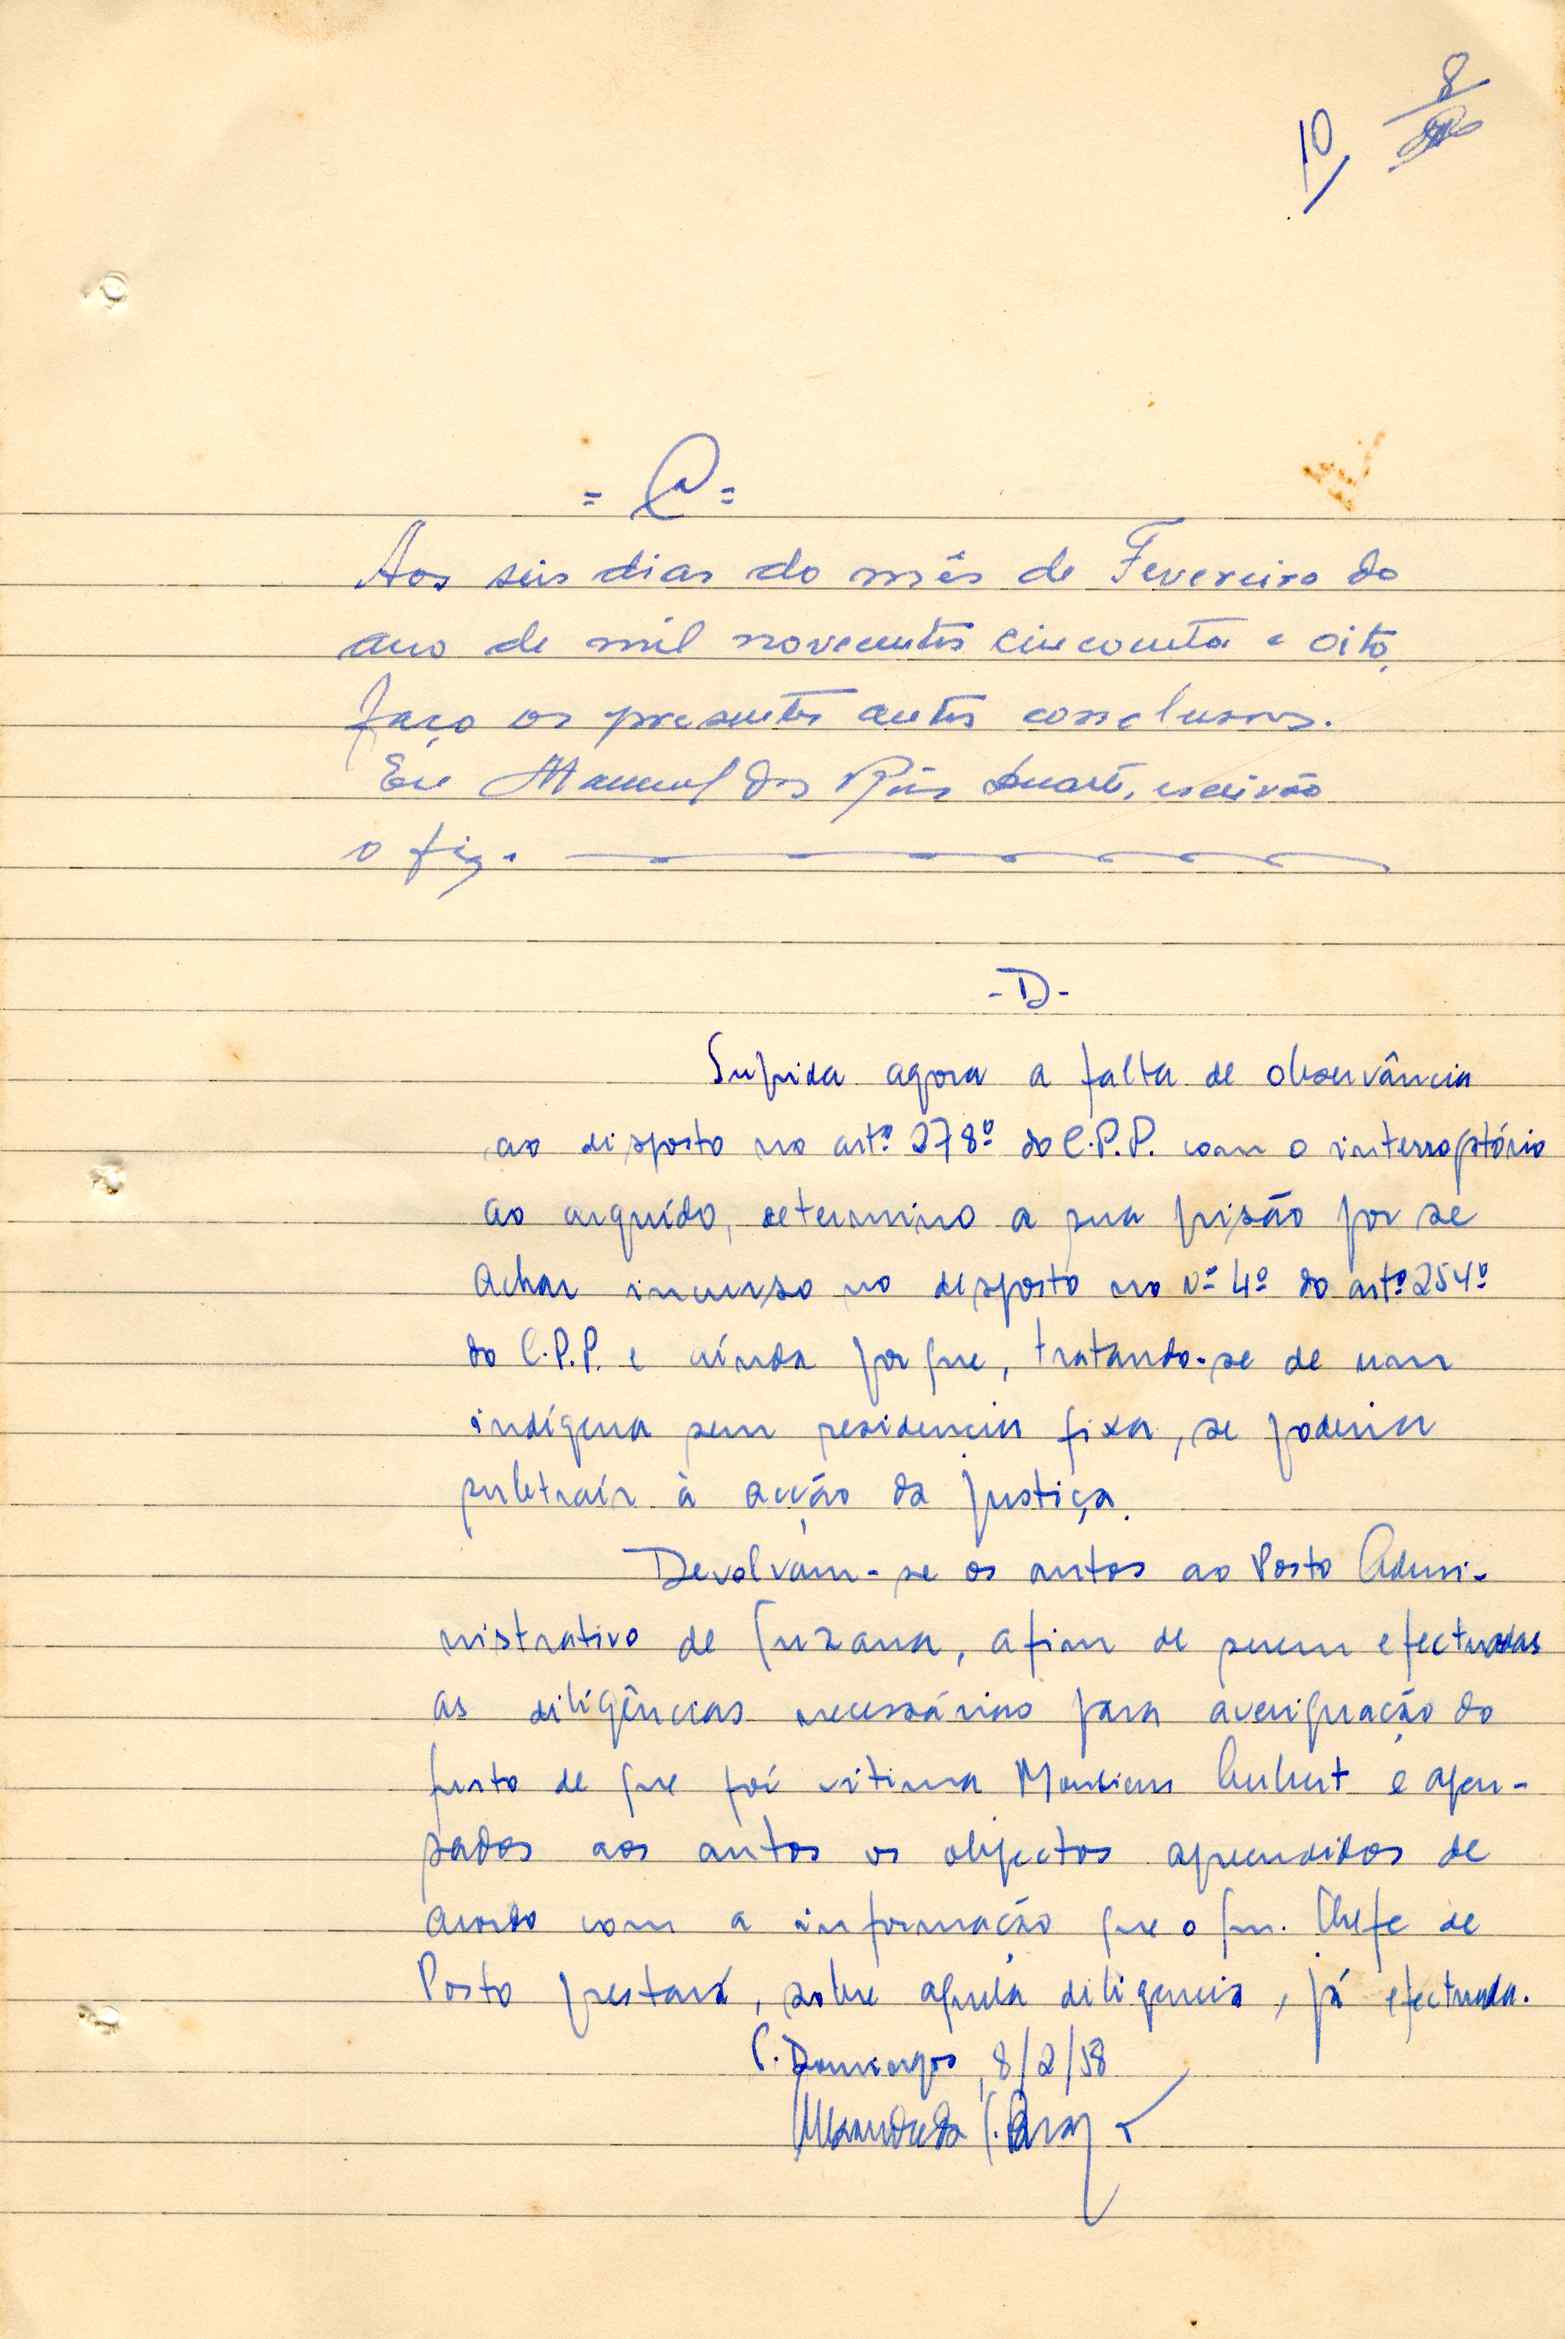 8
10
= C =
Aos seis dias do mês de Fevereiro do
ano de mil novecentos cincoenta e oito,
faço os presentes autos conclusos.
Eu Manuel dos Reis Duarte, escrivão
o fiz.
- D -
Suprida agora a falta de observância
ao disposto no artº 278º do C.P.P. com o interrogatório
ao arguido, determino a sua prisão por se
achar incurso no disposto no nº 4º do artº 254º
do C.P.P. e ainda porque, tratando-se de um
indígena sem residencia fixa, se poderia
subtraír à acção da justiça.
Devolvam-se os autos ao Posto Admi-
nistrativo de Suzana, afim de serem efectuadas
as diligências necessárias para averiguação do
furto de que foi vitima Monsieur Aubert e apen-
sados aos autos os objectos apreendidos de
acordo com a informação que o Snr. Chefe de
Posto prestará, sobre aquela diligencia, já efectuada.
S. Domingos, 8/2/58